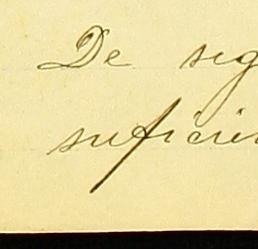 De seg
suficien